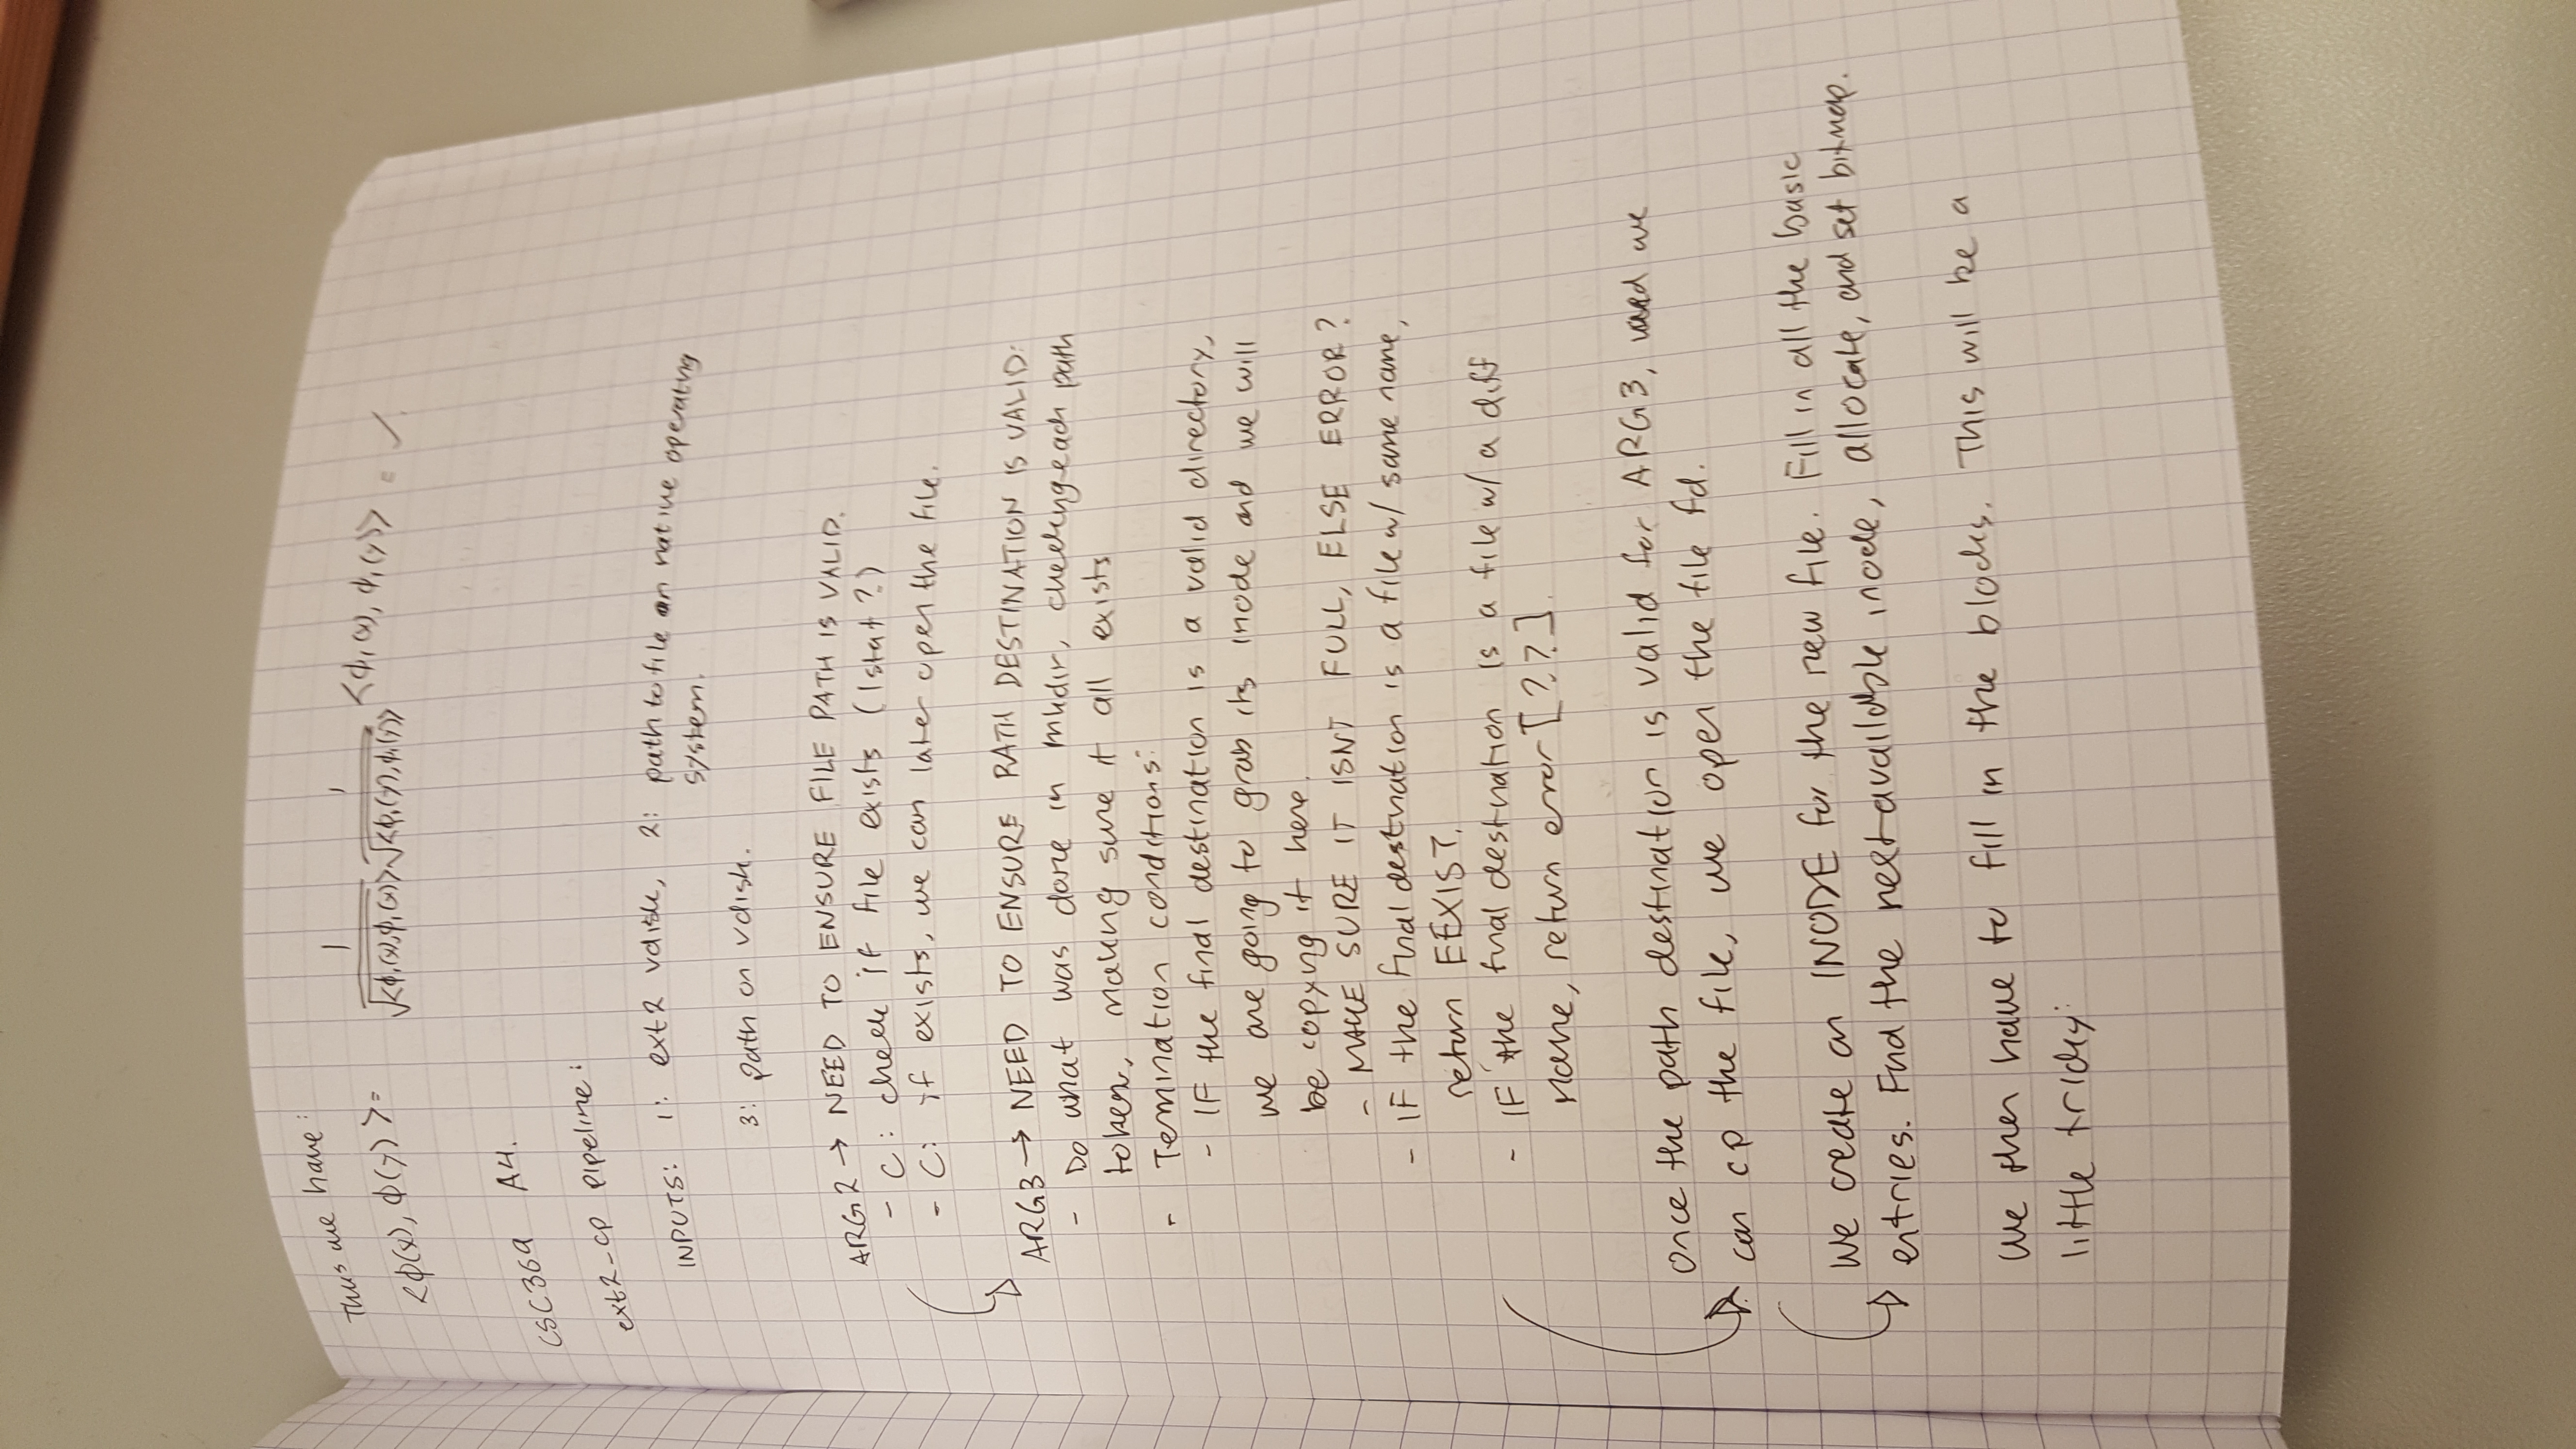 Thus we have:
<φ(x), φ(y)> = 1/√<φ₁(x),φ₁(x)> 1/√<φ₁(y),φ₁(y)> <φ₁(x), φ₁(y)> = ✓.
CSC369 A4.
ext2-cp pipeline:
INPUTS: 1: ext2 vdisk, 2: path to file on native operating
system.
3: path on vdisk.
ARG2 → NEED TO ENSURE FILE PATH IS VALID.
- C: check if file exists (lstat?)
- C: if exists, we can later open the file.
ARG3 → NEED TO ENSURE PATH DESTINATION IS VALID:
- Do what was done in mkdir, checking each path
token, making sure it all exists
- Termination conditions:
- IF the final destination is a valid directory,
we are going to grab its inode and we will
be copying it here.
- MAKE SURE IT ISNT FULL, ELSE ERROR?
- IF the final destination is a file w/ same name,
return EEXIST.
- IF the final destination is a file w/ a diff
name, return error [??].
Once the path destination is valid for ARG3, and we
can cp the file, we open the file fd.
We create an INODE for the new file. Fill in all the basic
entries. Find the next available inode, allocate, and set bitmap.
We then have to fill in the blocks. This will be a
little tricky: